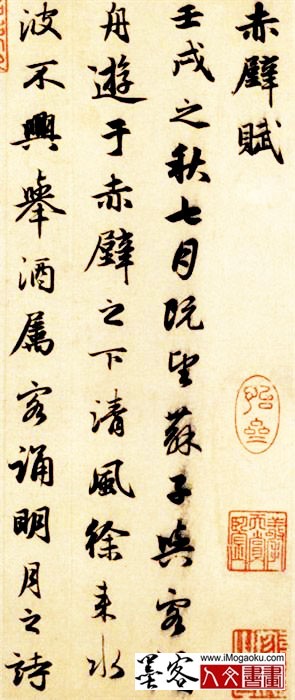 赤壁賦
壬戌之秋七月既望蘇子與客
舟遊于赤壁之下清風徐来水
波不興舉酒屬客誦明月之詩
墨客
www.iMogaoku.com
人文書畫